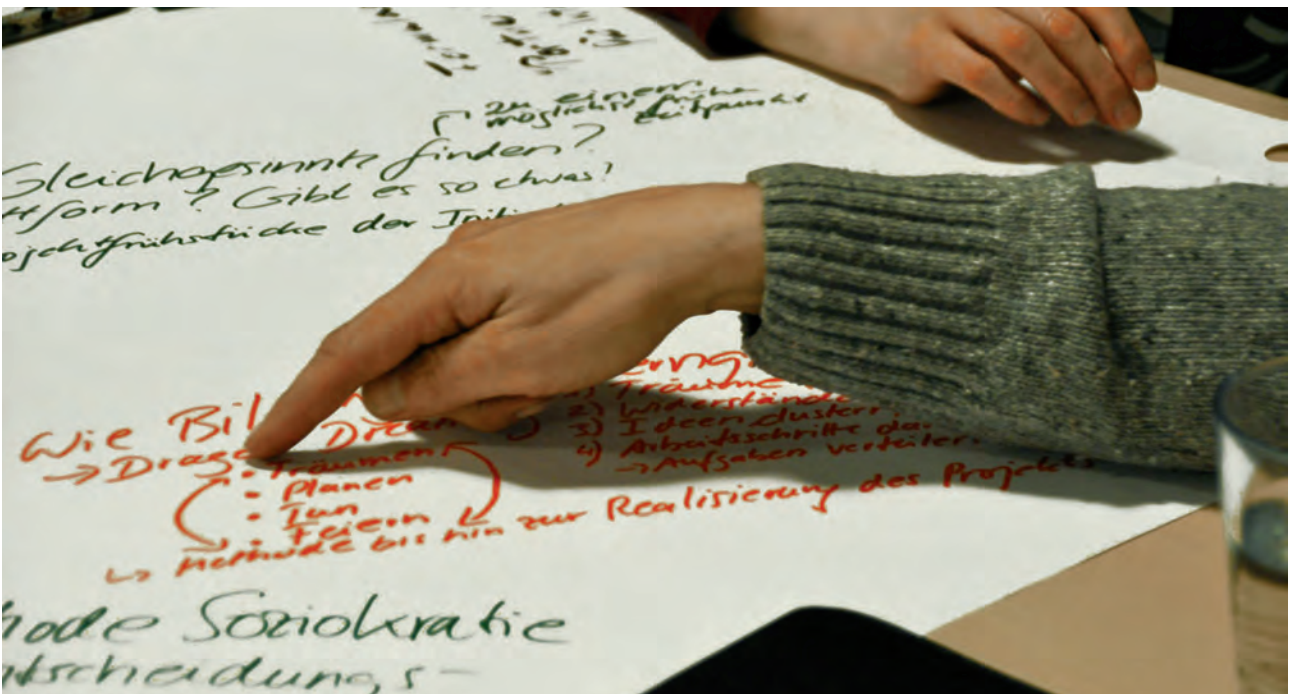 zu einem
möglichst frühen Zeitpunkt
Gleichgesinnte finden?
ttform? Gibt es so etwas?
ojektfrühstücke der Initi
Wie Bil
→ Drag Dream
• Träumen
• Planen
• Tun
• Feiern
↳ Methode bis hin zur Realisierung des Projekts
1) Träume
2) Widerstände
3) Ideen clustern
4) Arbeitsschritte da
→ Aufgaben verteilen
hode Soziokratie
ntscheidungs-